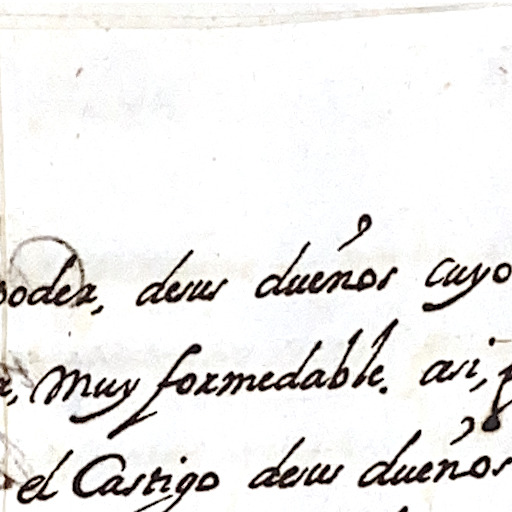 poder, desus dueños cuyo
Muy formedable. asi,
el Castigo desus dueños